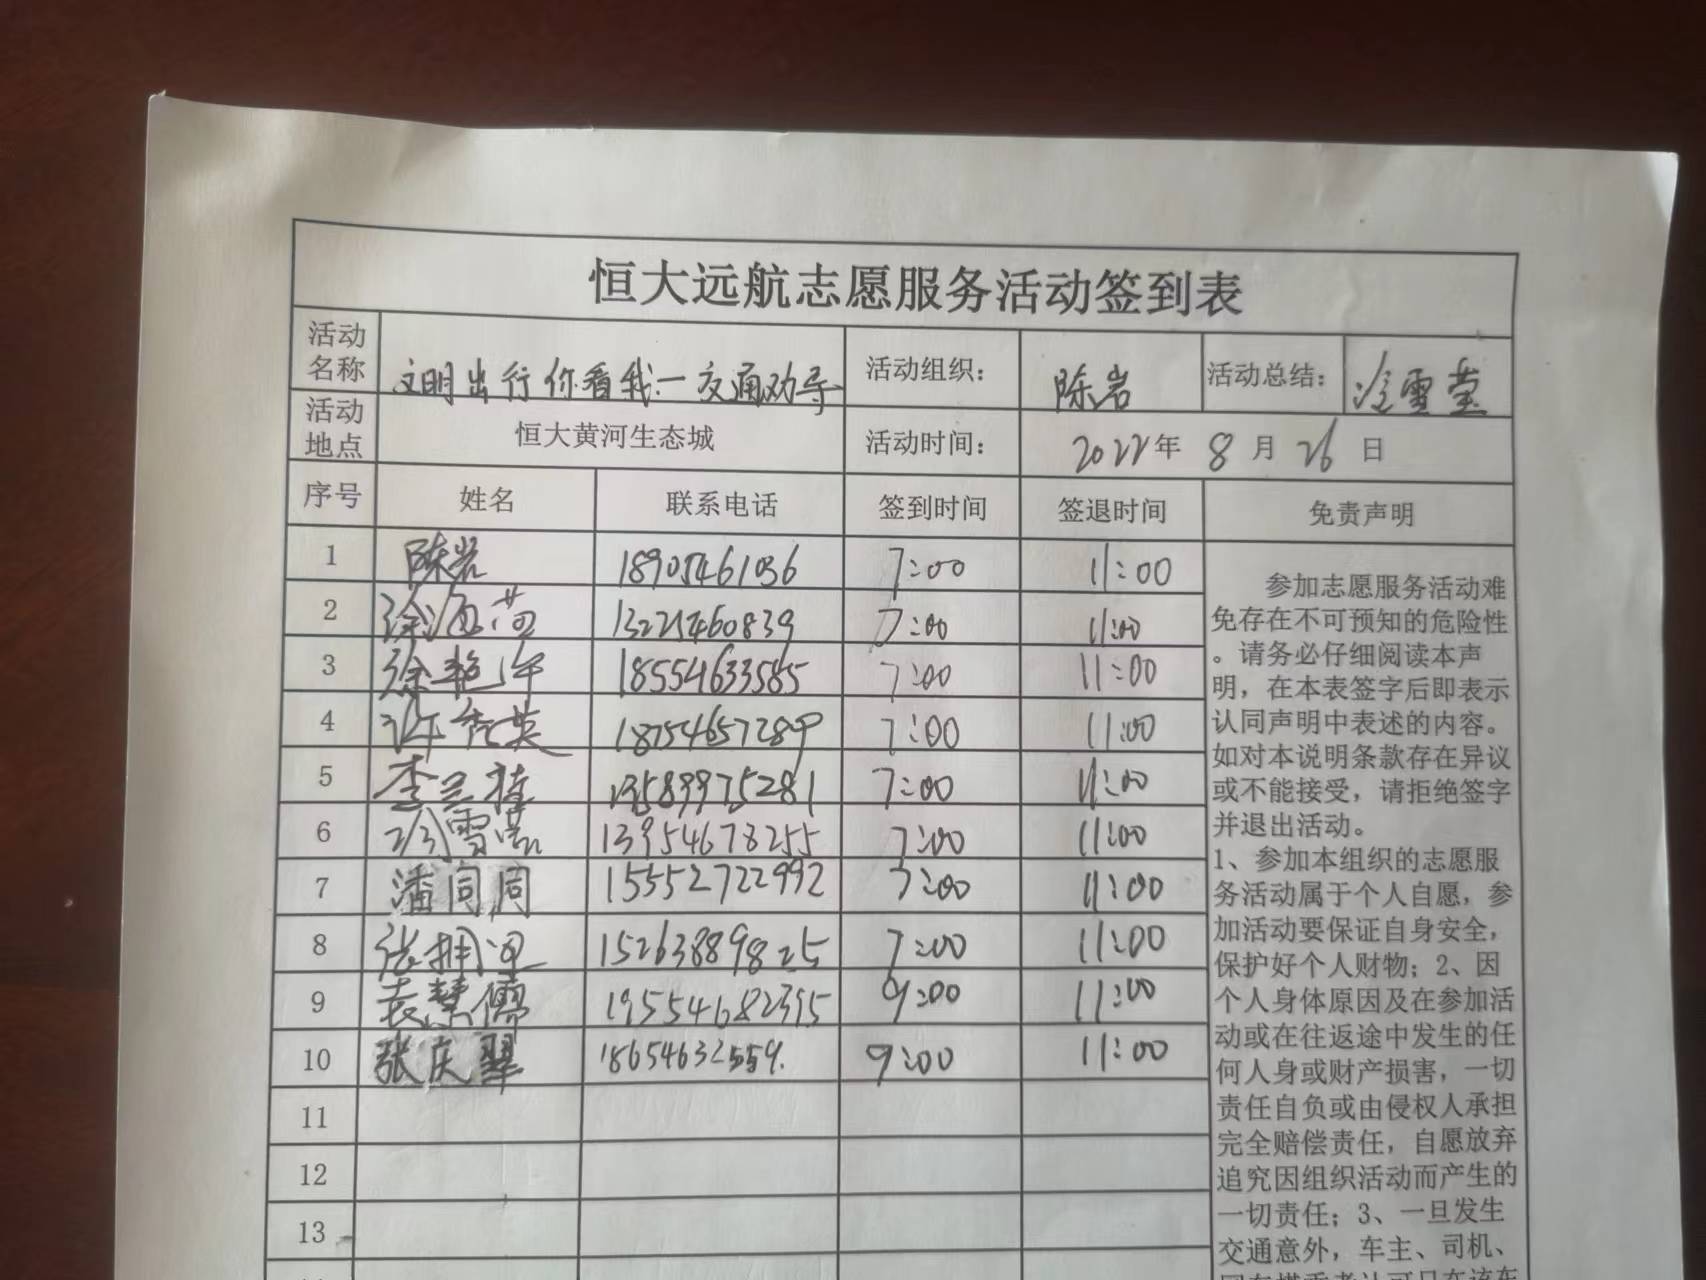 恒大远航志愿服务活动签到表
活动名称 文明出行你看我—交通劝导 活动组织： 陈岩 活动总结： 冷雪莹
活动地点 恒大黄河生态城 活动时间： 2022年 8月 26日
序号 姓名 联系电话 签到时间 签退时间 免责声明
1 陈岩 18905461036 7:00 11:00
2 13221460839 7:00 11:00
3 徐艳华 18554633585 7:00 11:00
4 许秀英 18754657289 7:00 11:00
5 李兰桂 13589975281 7:00 11:00
6 13954678255 7:00 11:00
7 潘同同 15552722992 7:00 11:00
8 15263889825 7:00 11:00
9 袁慧儒 9:00 11:00
10 张庆翠 18654632559. 9:00 11:00
11
12
13
参加志愿服务活动难
免存在不可预知的危险性
。请务必仔细阅读本声
明，在本表签字后即表示
认同声明中表述的内容。
如对本说明条款存在异议
或不能接受，请拒绝签字
并退出活动。
1、参加本组织的志愿服
务活动属于个人自愿，参
加活动要保证自身安全，
保护好个人财物；2、因
个人身体原因及在参加活
动或在往返途中发生的任
何人身或财产损害，一切
责任自负或由侵权人承担
完全赔偿责任，自愿放弃
追究因组织活动而产生的
一切责任；3、一旦发生
交通意外，车主、司机、